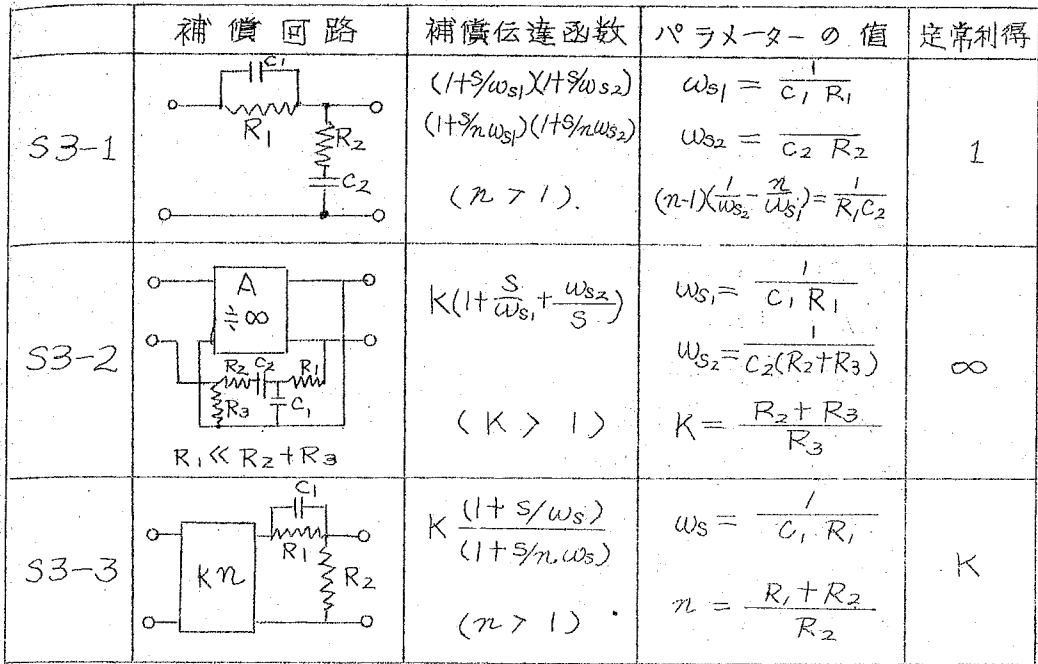 補償回路 補償伝達函数 パラメーターの値 定常利得
S3-1
C1
R1
R2
C2
(1+S/ωS1)(1+S/ωS2)
(1+S/nωS1)(1+S/nωS2)
(n > 1).
ωS1 = 1/C1 R1
ωS2 = /C2 R2
(n-1)(1/ωS2 - n/ωS1) = 1/R1C2
1
S3-2
A
≒∞
R2 C2 R1
R3 C1
R1 ≪ R2 + R3
K(1 + S/ωS1 + ωS2/S)
(K > 1)
ωS1 = 1/C1 R1
ωS2 = 1/C2(R2+R3)
K = R2 + R3/R3
∞
S3-3
Kn
C1
R1
R2
K (1 + S/ωS)/(1 + S/nωS)
(n > 1)
ωS = 1/C1 R1
n = R1 + R2/R2
K